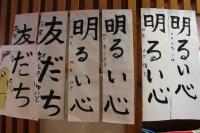 明るい心
明るい心
明るい心
明るい心
友だち
友だち